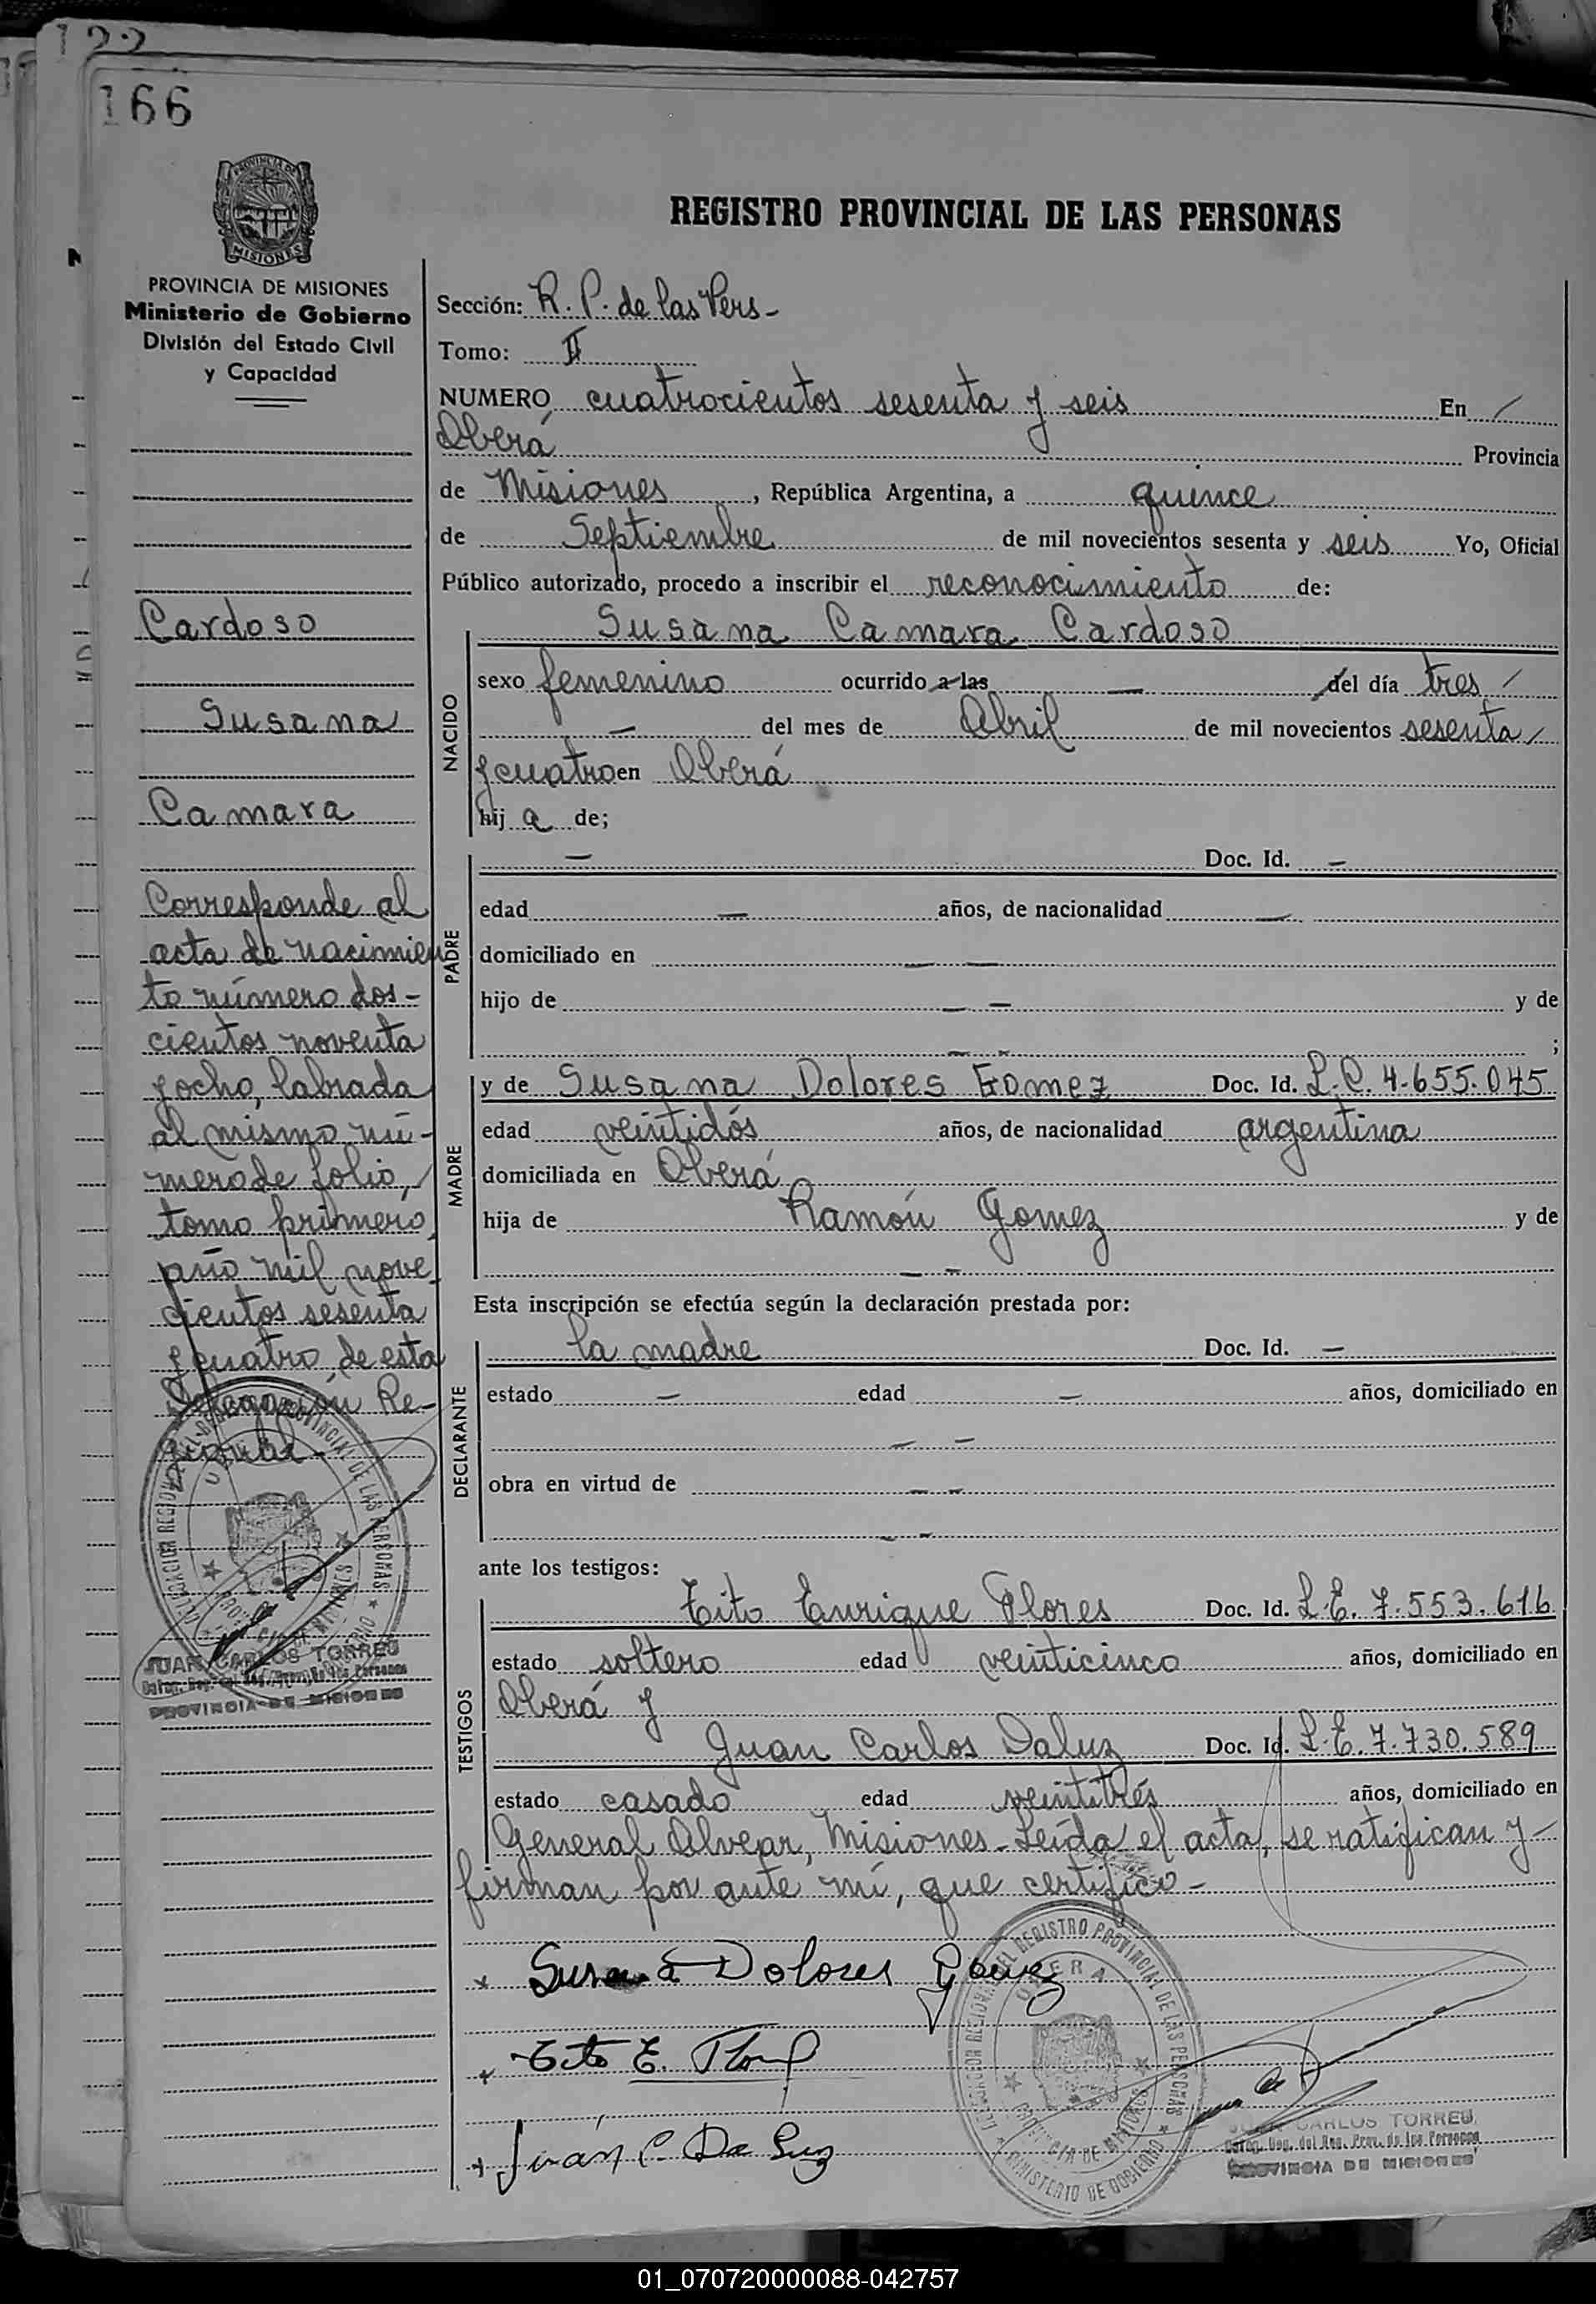 122
166
PROVINCIA DE MISIONES
Ministerio de Gobierno
División del Estado Civil
y Capacidad
Cardoso
Susana
Camara
Corresponde al
acta de nacimien
to número dos-
cientos noventa
y ocho, labrada
al mismo nú-
mero de folio,
tomo primero,
año mil nove
cientos sesenta
y cuatro de esta
Delegación Re-
gional-
JUAN CARLOS TORREU
PROVINCIA DE MISIONES
REGISTRO PROVINCIAL DE LAS PERSONAS
Sección: R. P. de las Pers-
Tomo: II
NUMERO cuatrocientos sesenta y seis En /
Oberá Provincia
de Misiones, República Argentina, a quince
de Septiembre de mil novecientos sesenta y seis Yo, Oficial
Público autorizado, procedo a inscribir el reconocimiento de:
NACIDO
Susana Camara Cardoso
sexo femenino ocurrido a las — del día tres /
— del mes de Abril de mil novecientos sesenta /
y cuatro en Oberá
hij a de;
PADRE
— Doc. Id. —
edad — años, de nacionalidad —
domiciliado en — —
hijo de — — y de
— - ;
MADRE
y de Susana Dolores Gomez Doc. Id. L.C. 4.655.045
edad veintidós años, de nacionalidad argentina
domiciliada en Oberá
hija de Ramón Gomez y de
— -
Esta inscripción se efectúa según la declaración prestada por:
DECLARANTE
la madre Doc. Id. —
estado — edad — años, domiciliado en
— —
obra en virtud de — -
— -
ante los testigos:
TESTIGOS
Tito Enrique Flores Doc. Id. L.E. 7.553.616
estado soltero edad veinticinco años, domiciliado en
Oberá y
Juan Carlos Daluz Doc. Id. L.E. 7.730.589
estado casado edad veintitrés años, domiciliado en
General Alvear, Misiones- Leída el acta, se ratifican y-
firman por ante mí, que certifico-
x Susana Dolores Gomez
x Tito E. Flores
x Juán C. Da Luz
DELEGACION REGIONAL DEL REGISTRO PROVINCIAL DE LAS PERSONAS
OBERA
PROVINCIA DE MISIONES
MINISTERIO DE GOBIERNO
JUAN CARLOS TORREU
Deleg. Reg. del Reg. Prov. de las Personas
PROVINCIA DE MISIONES
01_070720000088-042757